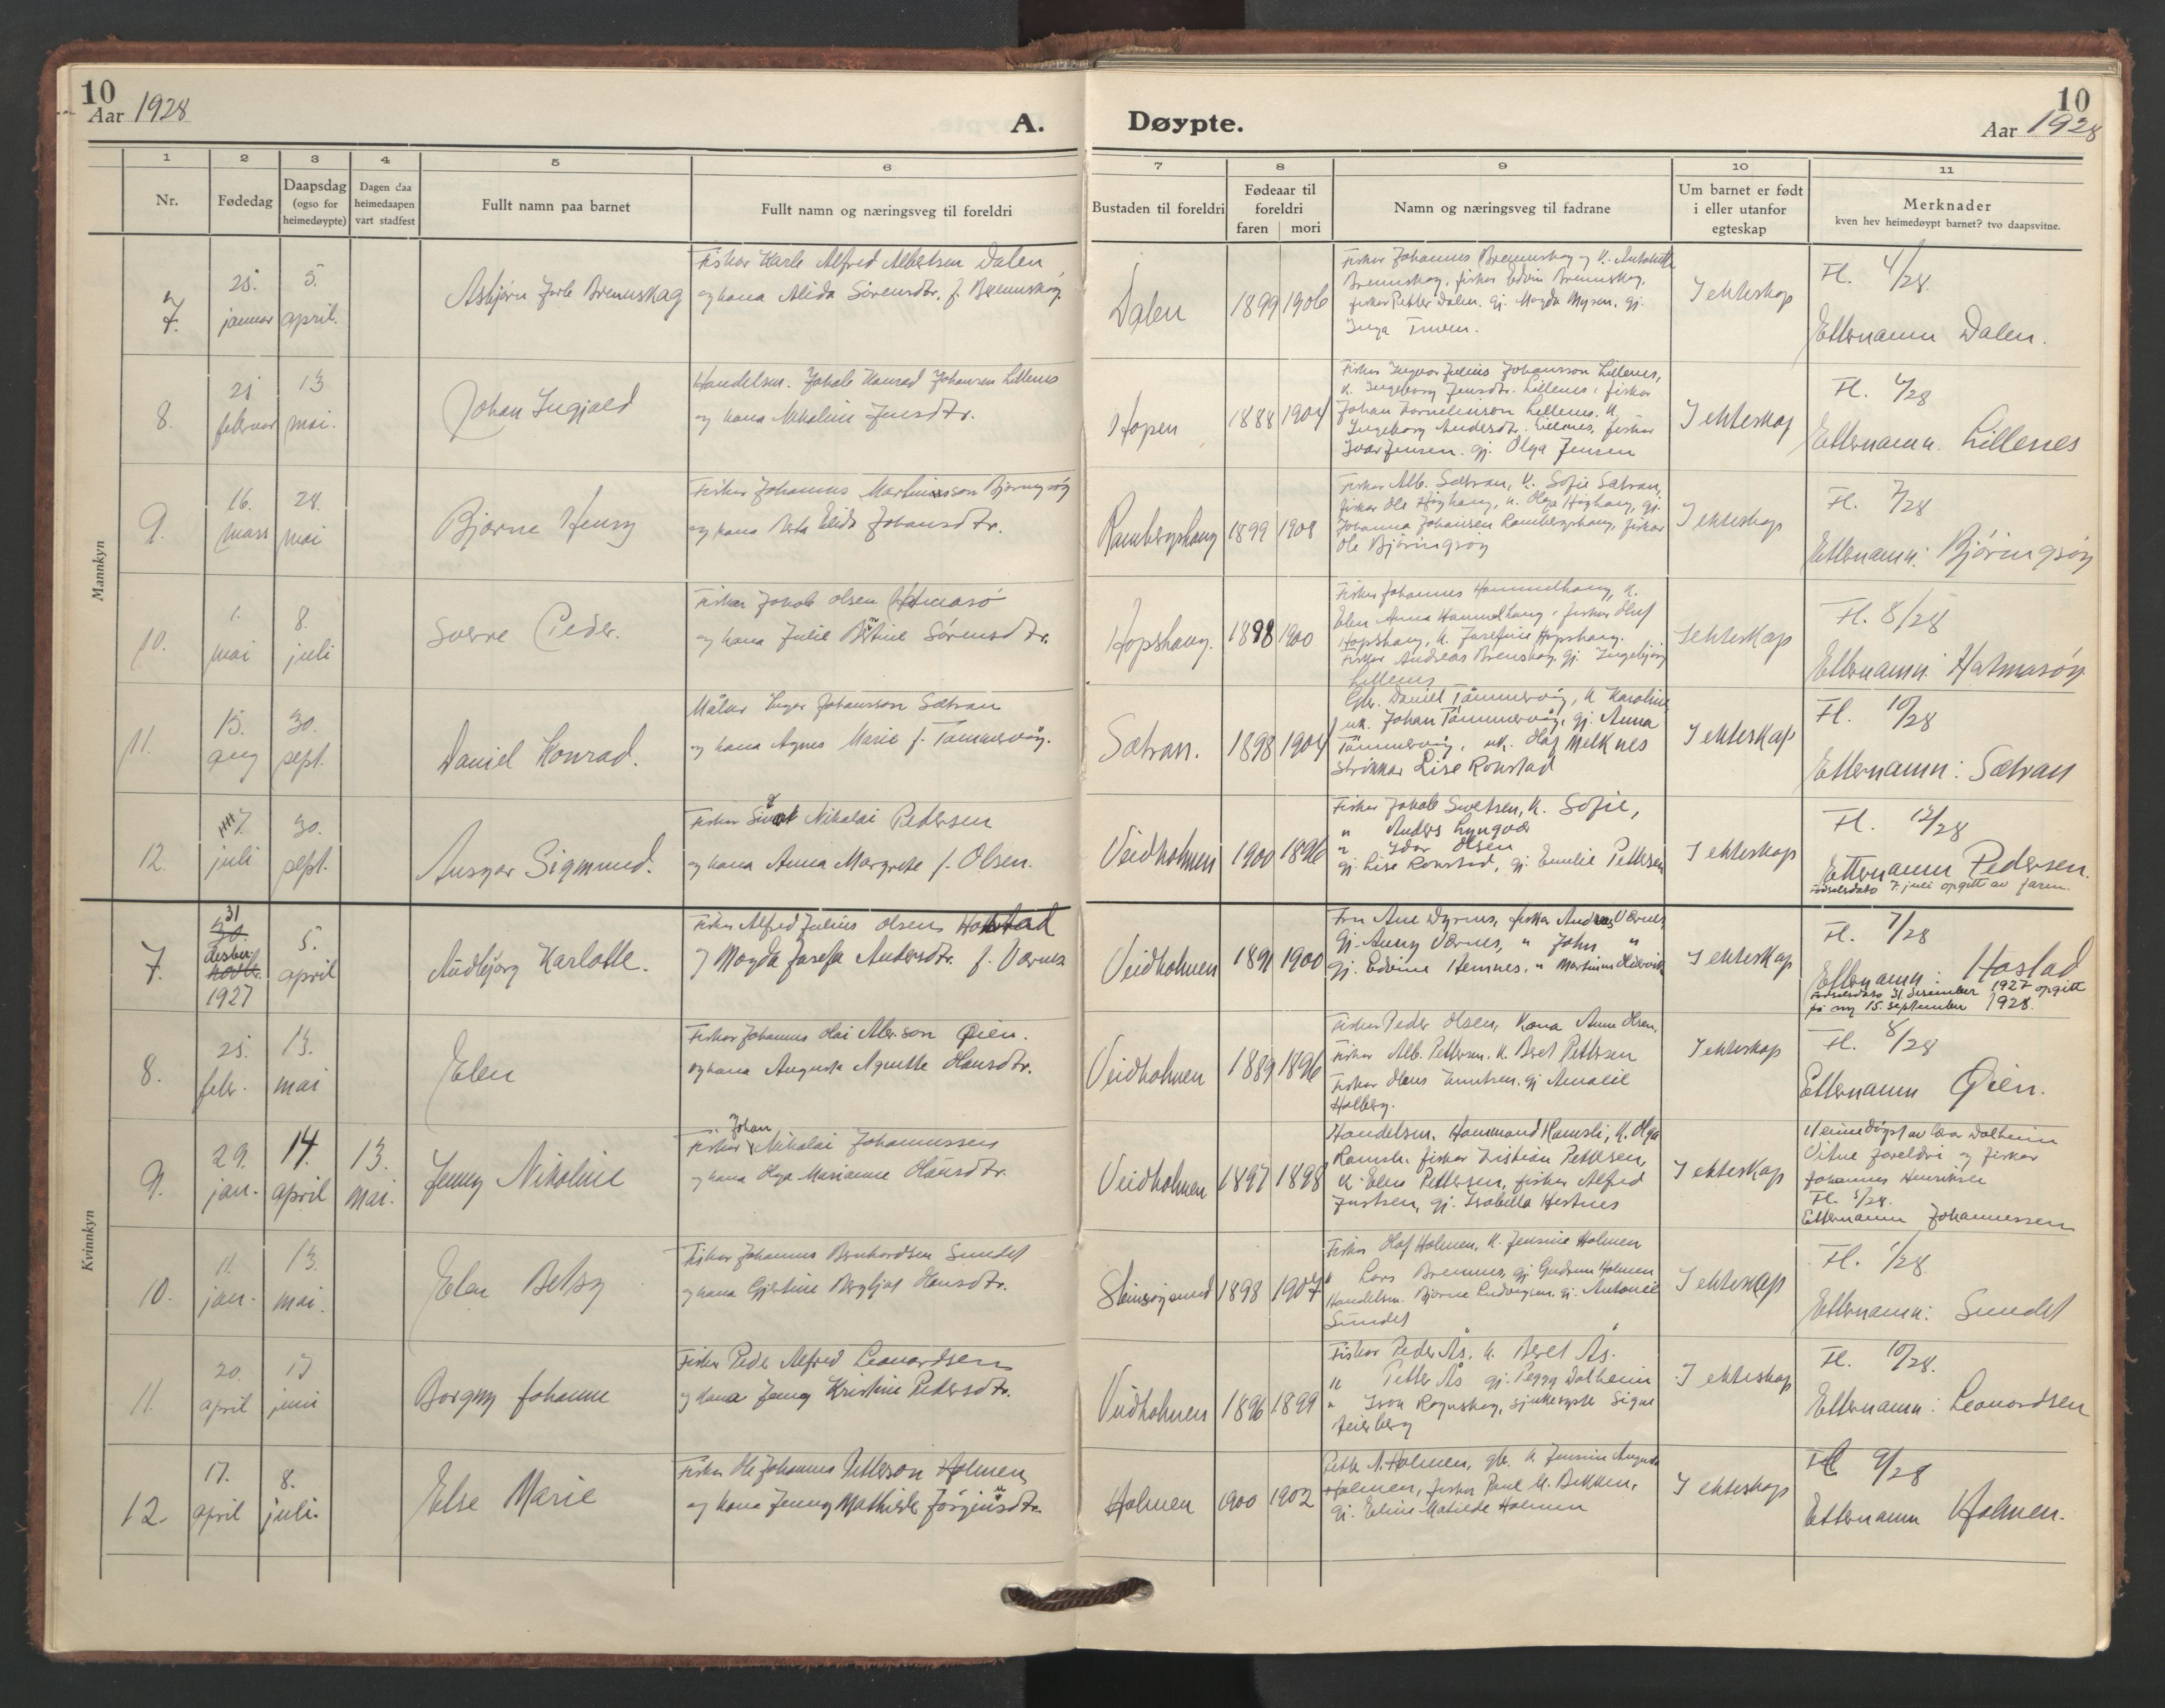 10
Aar 1928
A.
Døypte.
10
Aar 1928
1 2 3 4 5 6 7 8 9 10 11
Nr.
Fødedag
Daapsdag (ogso for heimedøypte)
Dagen daa heimedaapen vart stadfest
Fullt namn paa barnet
Fullt namn og næringsveg til foreldri
Bustaden til foreldri
Fødeaar til foreldri
faren mori
Namn og næringsveg til fadrane
Um barnet er født i eller utanfor egteskap
Merknader
kven hev heimedøypt barnet? tvo daapsvitne.
Mannkyn
7. 25. januar 5. april. Asbjørn Jarle Brennskag
Fisker Karle Alfred Albertsen Dalen
og kona Alida Sørensdtr. f. Brennskag.
Dalen 1899 1906
Fisker Johannes Brennskag og k. Antonette
Brennskag, fisker Edvin Brennskag,
fisker Petter Dalen. gj. Magda Myren, gj.
Inga
I ekteskap
Fl. 4/28.
Etternamn Dalen.
8. 21 februar 13 mai. Johan Ingjald
Handelsm. Jakob Konrad Johansen Lillenes
og kona Nikoline Jensdtr.
Hopen 1888 1904
Fisker Ingvar Julius Johansson Lillenes,
k. Ingeborg Jensdtr. Lillenes, fisker
Johan Korneliusson Lillenes, k.
Ingeborg Andersdtr. Lillenes, fisker
Ivar Jensen. gj. Olga Jensen
I ekteskap
Fl. 6/28
Etternamn. Lillenes
9. 16. mars 28. mai Bjarne Henry
Fisker Johannes Martinusson Bjøringsøy
og kona Berta Elida Johansdtr.
Ramberghaug 1899 1908
Fisker Alb. Sætran, k. Sofie Sætran,
fisker Ole Høghaug, k. Olga Høghaug, gj.
Johanna Johansen Ramberghaug, fisker
Ole Bjøringsøy
I ekteskap
Fl. 7/28
Etternamn: Bjøringsøy
10. 1. mai 8. juli Sverre Peder.
Fisker Jakob Olsen Hatmasø
og kona Julie Bertine Sørensdtr.
Hopshaug. 1898 1900
Fisker Johannes Hammelhaug, k.
Elen Anna Hammelhaug, fisker Oluf
Hopshaug, k. Josefine Hopshaug.
Fisker Andreas Brenskag. gj. Ingebjørg
Lillenes
I ekteskap
Fl. 8/28
Etternamn: Hatmasøy
11. 15. aug 30. sept. Daniel Konrad.
Målar Inger Johansson Sætran
og kona Agnes Marie f. Tømmervåg.
Sætran. 1898 1904
Gbr. Daniel Tømmervåg, k Karoline
uk. Johan Tømmervåg, gj. Anna
Tømmervåg, uk. Olaf Melknes
strikkar Lise Ronstad
I ekteskap
Fl. 10/28
Etternamn: Sætran
12. 7. juli 30. sept. Ansgar Sigmund.
Fisker Sivert Nikolai Pedersen
og kona Anna Margrete f. Olsen.
Veidholmen 1900 1896
Fisker Jakob Sivetsen, k. Sofie,
" Anders Lyngvær
" Idar Olsen
gj. Lise Ronstad, gj. Emilie Pettersen
I ekteskap
Fl. 12/28
Etternamn Pedersen.
Fødselsdato 7. juli opgitt av faren.
Kvinnkyn
7. 31 desbr. 1927 5. april Audbjørg Karlotte.
Fisker Alfred Julius Olsen Hastad
og Magda Josefa Andersdtr. f. Værnes
Veidholmen 1891 1900
Fru Ane Dyrnes, fisker Andreas Værnes,
Gj. Anny Værnes, " John "
gj. Edvine Hemnes. " Martinus
I ekteskap
Fl. 7/28
Etternamn: Hastad
Fødselsdato 31. desember 1927 opgitt
på ny 15. september 1928.
8. 25. febr. 13. mai Elen
Fisker Johannes Olai Albr.son Øien.
og kona Augusta Agnette Hansdtr.
Veidholmen 1889 1896
Fisker Peder Olsen, kona Anne Olsen,
Fisker Alb. Pettersen. k. Beret Pettersen
Fisker Hans Knutsen. gj Amalie
Holberg.
I ekteskap
Fl. 8/28
Etternamn Øien.
9. 29. jan. 14. april 13. mai. Jenny Nikoline
Fisker Johan Nikolai Johannessen
og kona Olga Marianne Hansdtr.
Veidholmen 1897 1898
Handelsm. Hammand Ramsli, k. Olga
Ramsli. fisker Kristian Pettersen,
k. Elen Pettersen, fisker Alfred
Justsen, gj. Isabella Hestnes
I ekteskap
Heimedøypt av Dalheim
Vitne foreldri og fisker
Johannes Henriksen
Fl. 5/28.
Etternamn Johannessen
10. 11. jan. 13. mai. Elen Betsy
Fisker Johannes Bernhardsen Sundet
og kona Gjertine Bergljot Hansdtr.
Steinsøysund 1898 1907
Fisker Olaf Holmen, k. Jensine Holmen
" Lars Bremnes, gj Gudrun Holmen
Handelsm. Bjarne Ludvigsen. gj. Antonie
Sundet
I ekteskap
Fl. 1/28.
Etternamn: Sundet
11. 20. april 17 juni Borgny Johanne
Fisker Peder Alfred Leonardsen
og kona Jenny Kristine Pedersdtr.
Veidholmen 1896 1899
Fisker Peder Ås, k. Beret Ås.
" Petter Ås gj. Peggy Dalheim
" Ivar Rognskag, sjukesyster Signe
I ekteskap
Fl. 10/28.
Etternamn: Leonardsen
12. 17. april 8. juli. Else Marie
Fisker Ole Johannes Petterson Holmen
og kona Jenny Mathilde Jørginusdtr.
Holmen 1900 1902
Petter N. Holmen, gbr. k Jensine Augusta
Holmen, fisker Paul M. Bekken,
gj. Eline Matilde Holmen
I ekteskap
Fl 9/28
Etternamn Holmen.